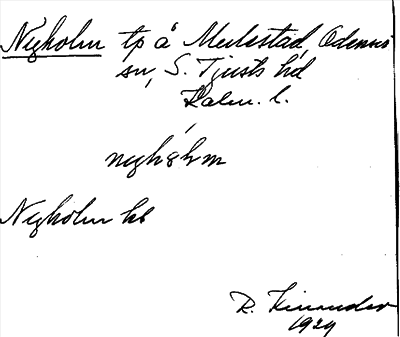 Nyholm tp å Mulestad, Odensvi
sn, S. Tjusts hd
Kalm. l.
Nyholm hb
R. Kinander
1929